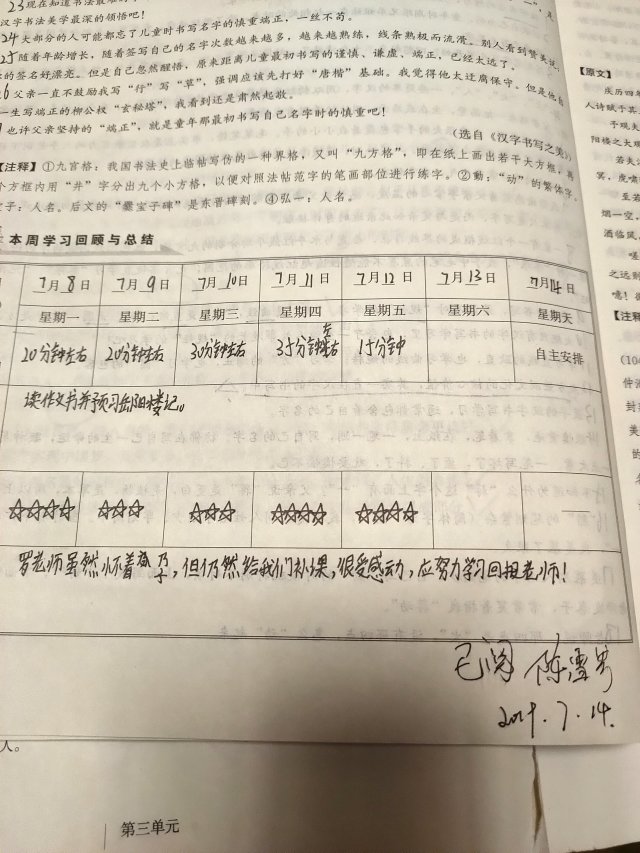 23现在知道书法最难的
汉字书法美学最深的领悟吧!
24大部分的人可能都忘了儿童时书写名字的慎重端正,一丝不苟。
25随着年龄增长,随着签写自己的名字次数越来越多,越来越熟练,线条熟极而流滑。别人看到赞美说:
的签名好漂亮。但是自己忽然醒悟,原来距离儿童最初书写的谨慎、谦虚、端正,已经太远了。
6父亲一直不鼓励我写“行”写“草”,强调应该先打好“唐楷”基础。我觉得他太迂腐保守。但是他自
一生写端正的柳公权“玄秘塔”,我看到还是肃然起敬。
也许父亲坚持的“端正”,就是童年那最初书写自己名字时的慎重吧!
(选自《汉字书写之美》)
【注释】①九宫格:我国书法史上临帖写仿的一种界格,又叫“九方格”,即在纸上画出若干大方框,再
个方框内用“井”字分出九个小方格,以便对照法帖范字的笔画部位进行练字。②動:“动”的繁体字。
宝子:人名。后文的“爨宝子碑”是东晋碑刻。④弘一:人名。
本周学习回顾与总结
7月8日 7月9日 7月10日 7月11日 7月12日 7月13日 7月14日
星期一 星期二 星期三 星期四 星期五 星期六 星期天
20分钟左右 20分钟左右 30分钟左右 35分钟左右 15分钟 自主安排
读作文书并预习岳阳楼记。
☆☆☆☆ ☆☆☆ ☆☆☆ ☆☆☆☆ ☆☆☆☆
罗老师虽然怀着孕,但仍然给我们补课,很受感动,应努力学习回报老师!
已阅
2019.7.14.
人。
第三单元
【原文】
庆历四年
人诗赋于其
予观夫
阳楼之大观
若夫
冥,虎啸
至若
烟一空,
酒临风,
嗟
之远则
噫!
【注释
(104